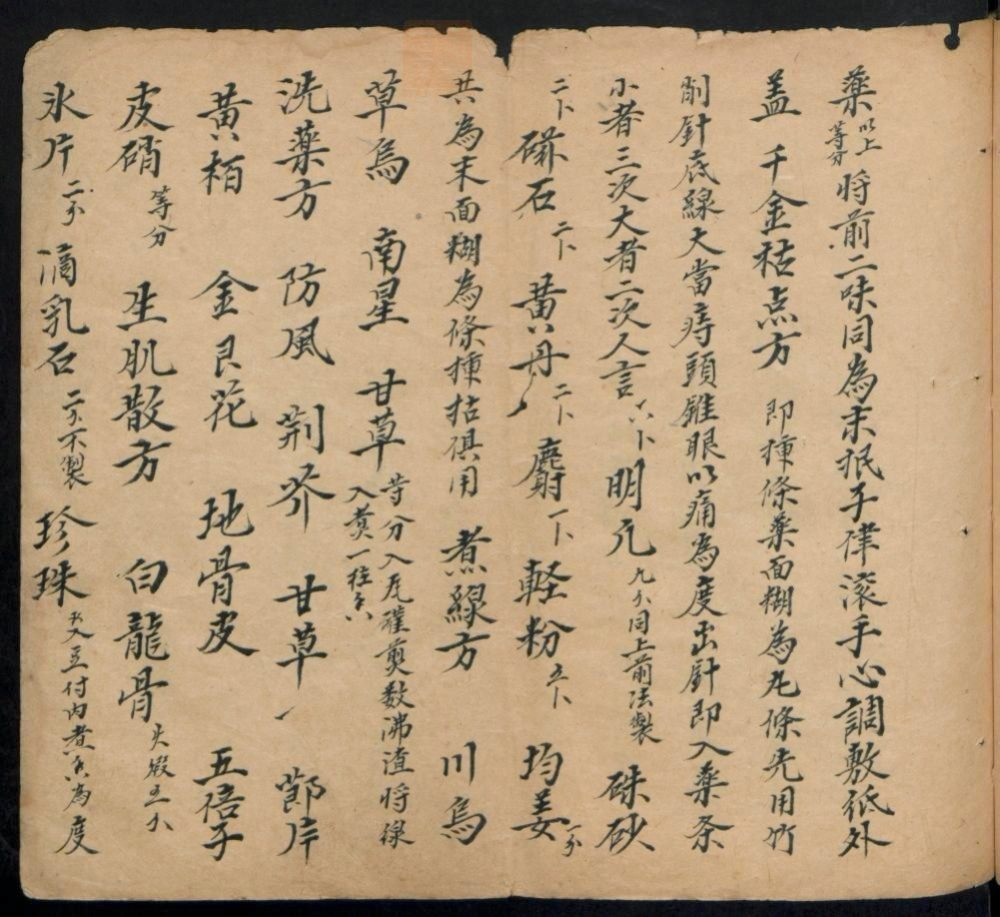 藥以上等分將前二味同為末抿子律滚手心調敷紙外
盖　千金枯点方　即揷條藥面糊為凡條先用竹
削針底線大當痔頭雖眼以痛為度出針即入藥条
小者三次大者二次人言六卜明凡九分同上前法製　硃砂
二卜　礞石二卜　黄丹二卜　麝一卜　輕粉五卜　均姜一分
共為末面糊為條揷枯俱用　煮線方　川烏
草烏　南星　甘草等分入瓦礶煎数沸渣將線入煮一柱香
洗藥方　防風　荆芥　甘草　鄭片
黄栢　金艮花　地骨皮　五倍子
皮硝等分　生肌散方　白龍骨火煅五分
氷片二分　滴乳石二分不製　珍珠五入豆付内煮香為度